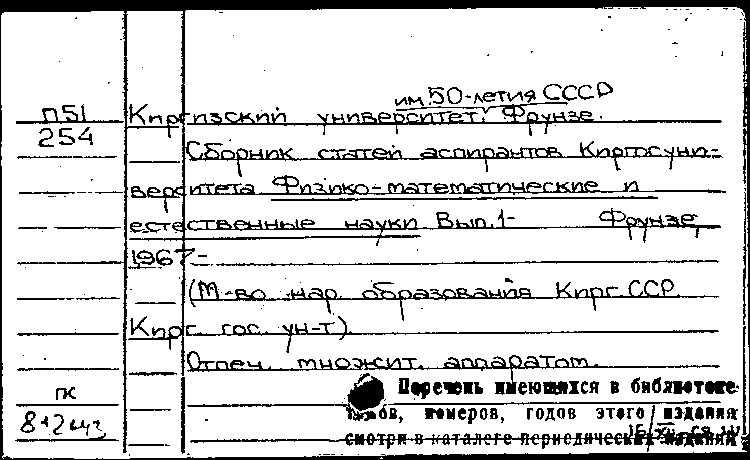 им. 50-летия СССР
П51 Киргизский университет, Фрунзе.
254
Сборник статей аспирантов Киргосуни-
верситета Физико-математические и
естественные науки Вып. 1- Фрунзе,
1967-
(М-во нар. образования Кирг. ССР.
Кирг. гос. ун-т).
Отпеч. множит. аппаратом.
ПК
Перечень имеющихся в библиотеке
номеров, годов этого издания
смотри в каталоге периодических изданий